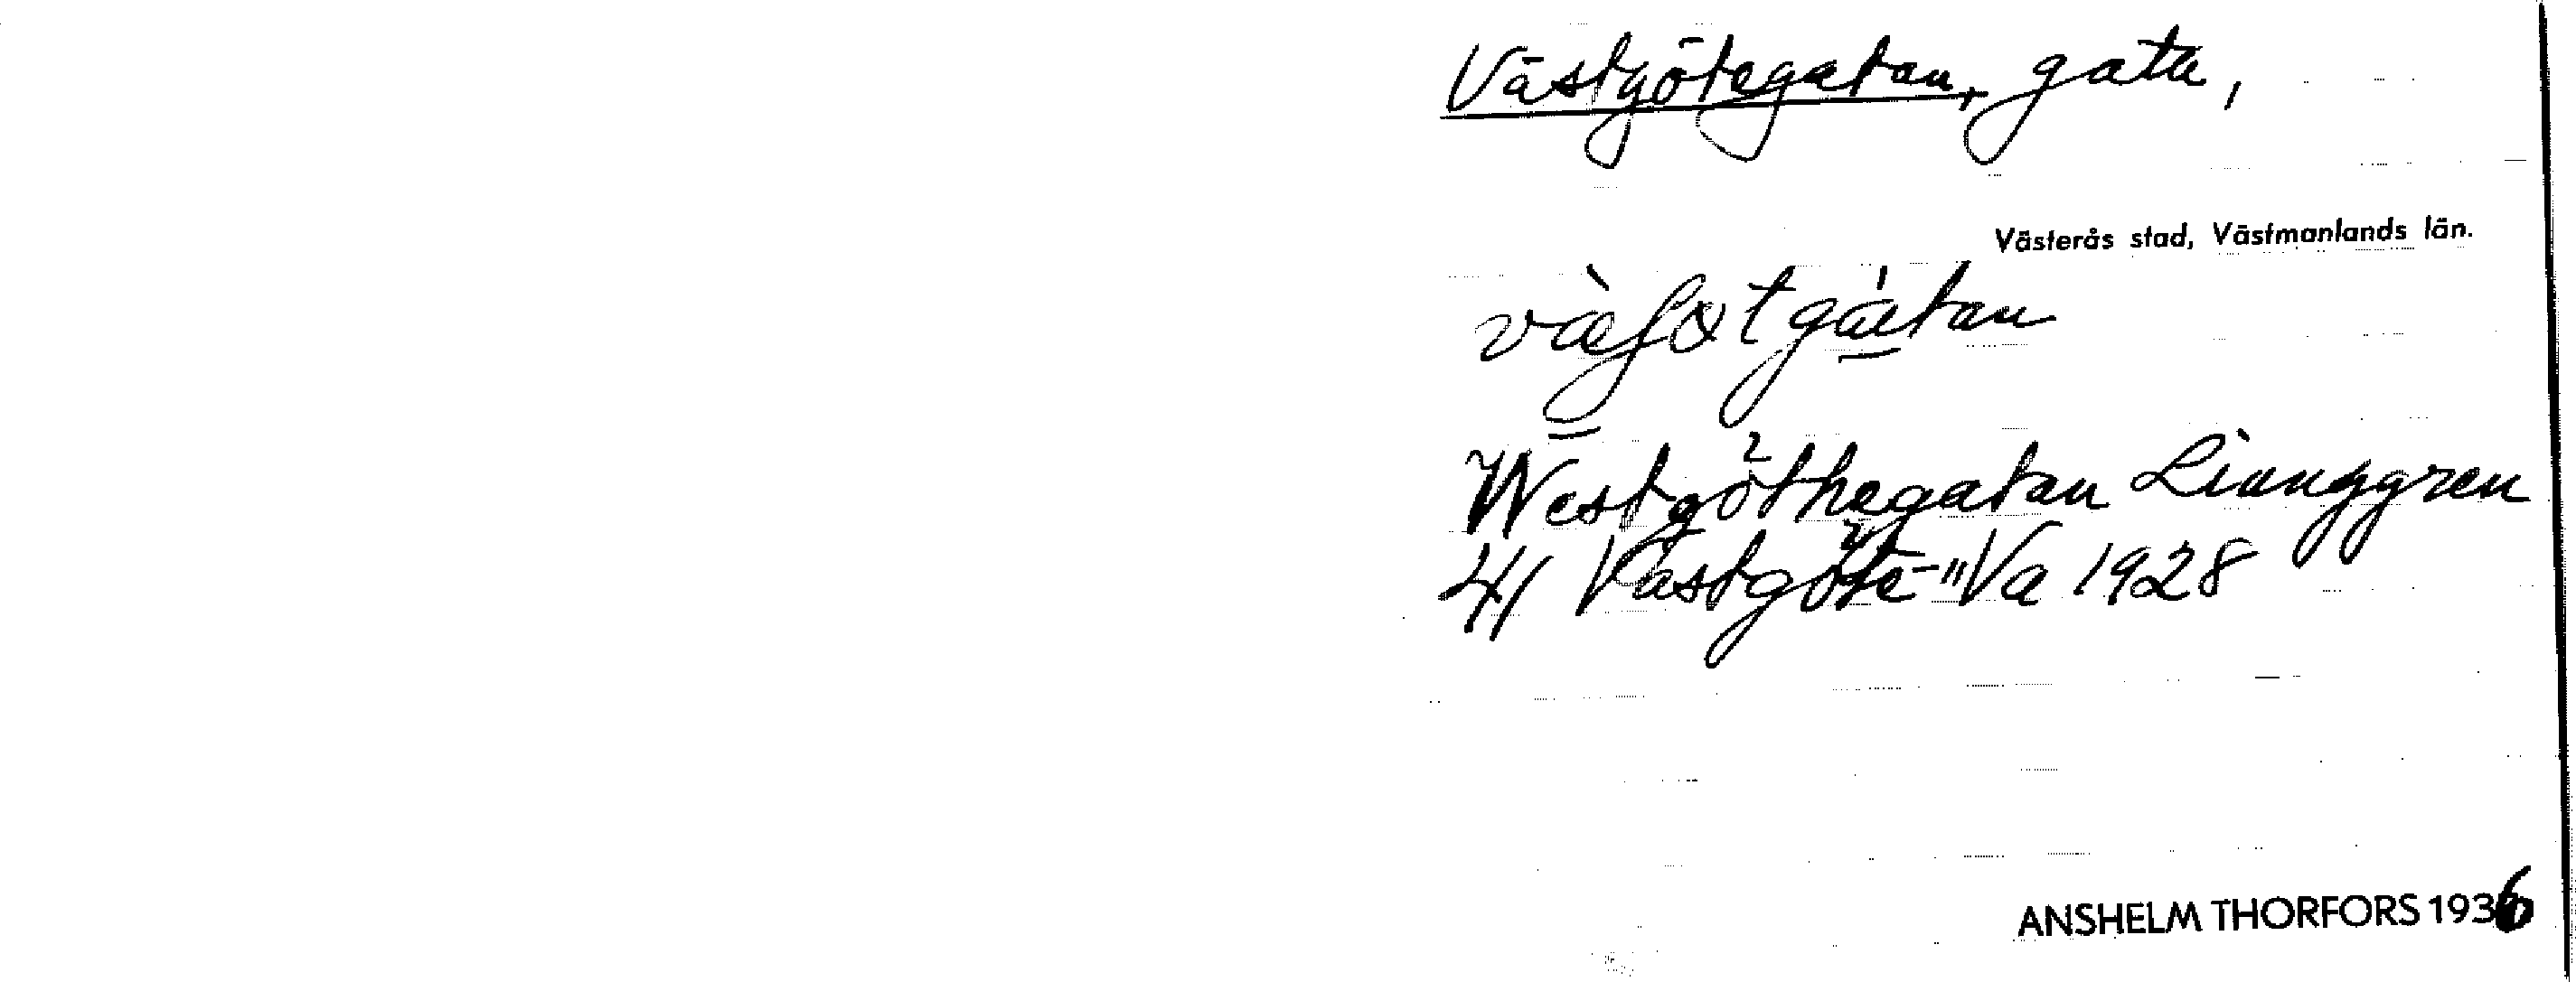 Västgötegatan, gata,
Västerås stad, Västmanlands län.
Westgöthegatan Liunggren
41 Västgöte-"Va 1928
ANSHELM THORFORS 1936